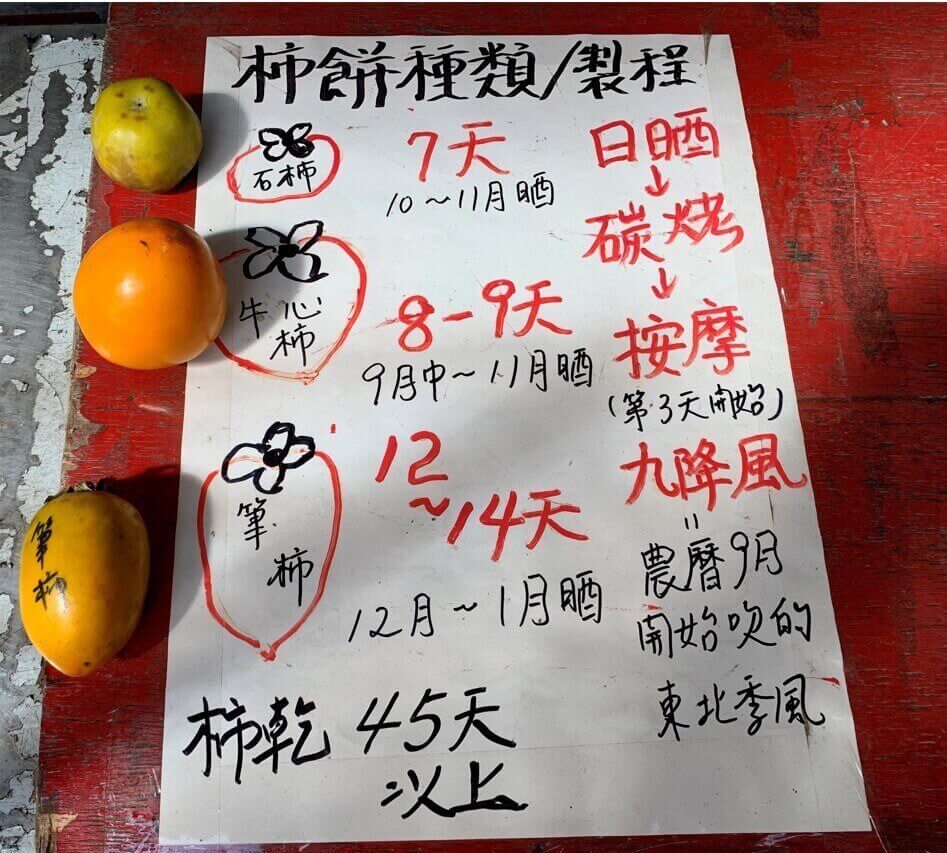 柿餅種類/製程
石柿
7天
10～11月晒
牛心
柿
8-9天
9月中～11月晒
筆
柿
12
～14天
12月～1月晒
柿乾 45天
以上
日晒
↓
碳烤
↓
按摩
(第3天開始)
九降風
=
農曆9月
開始吹的
東北季風
筆
柿